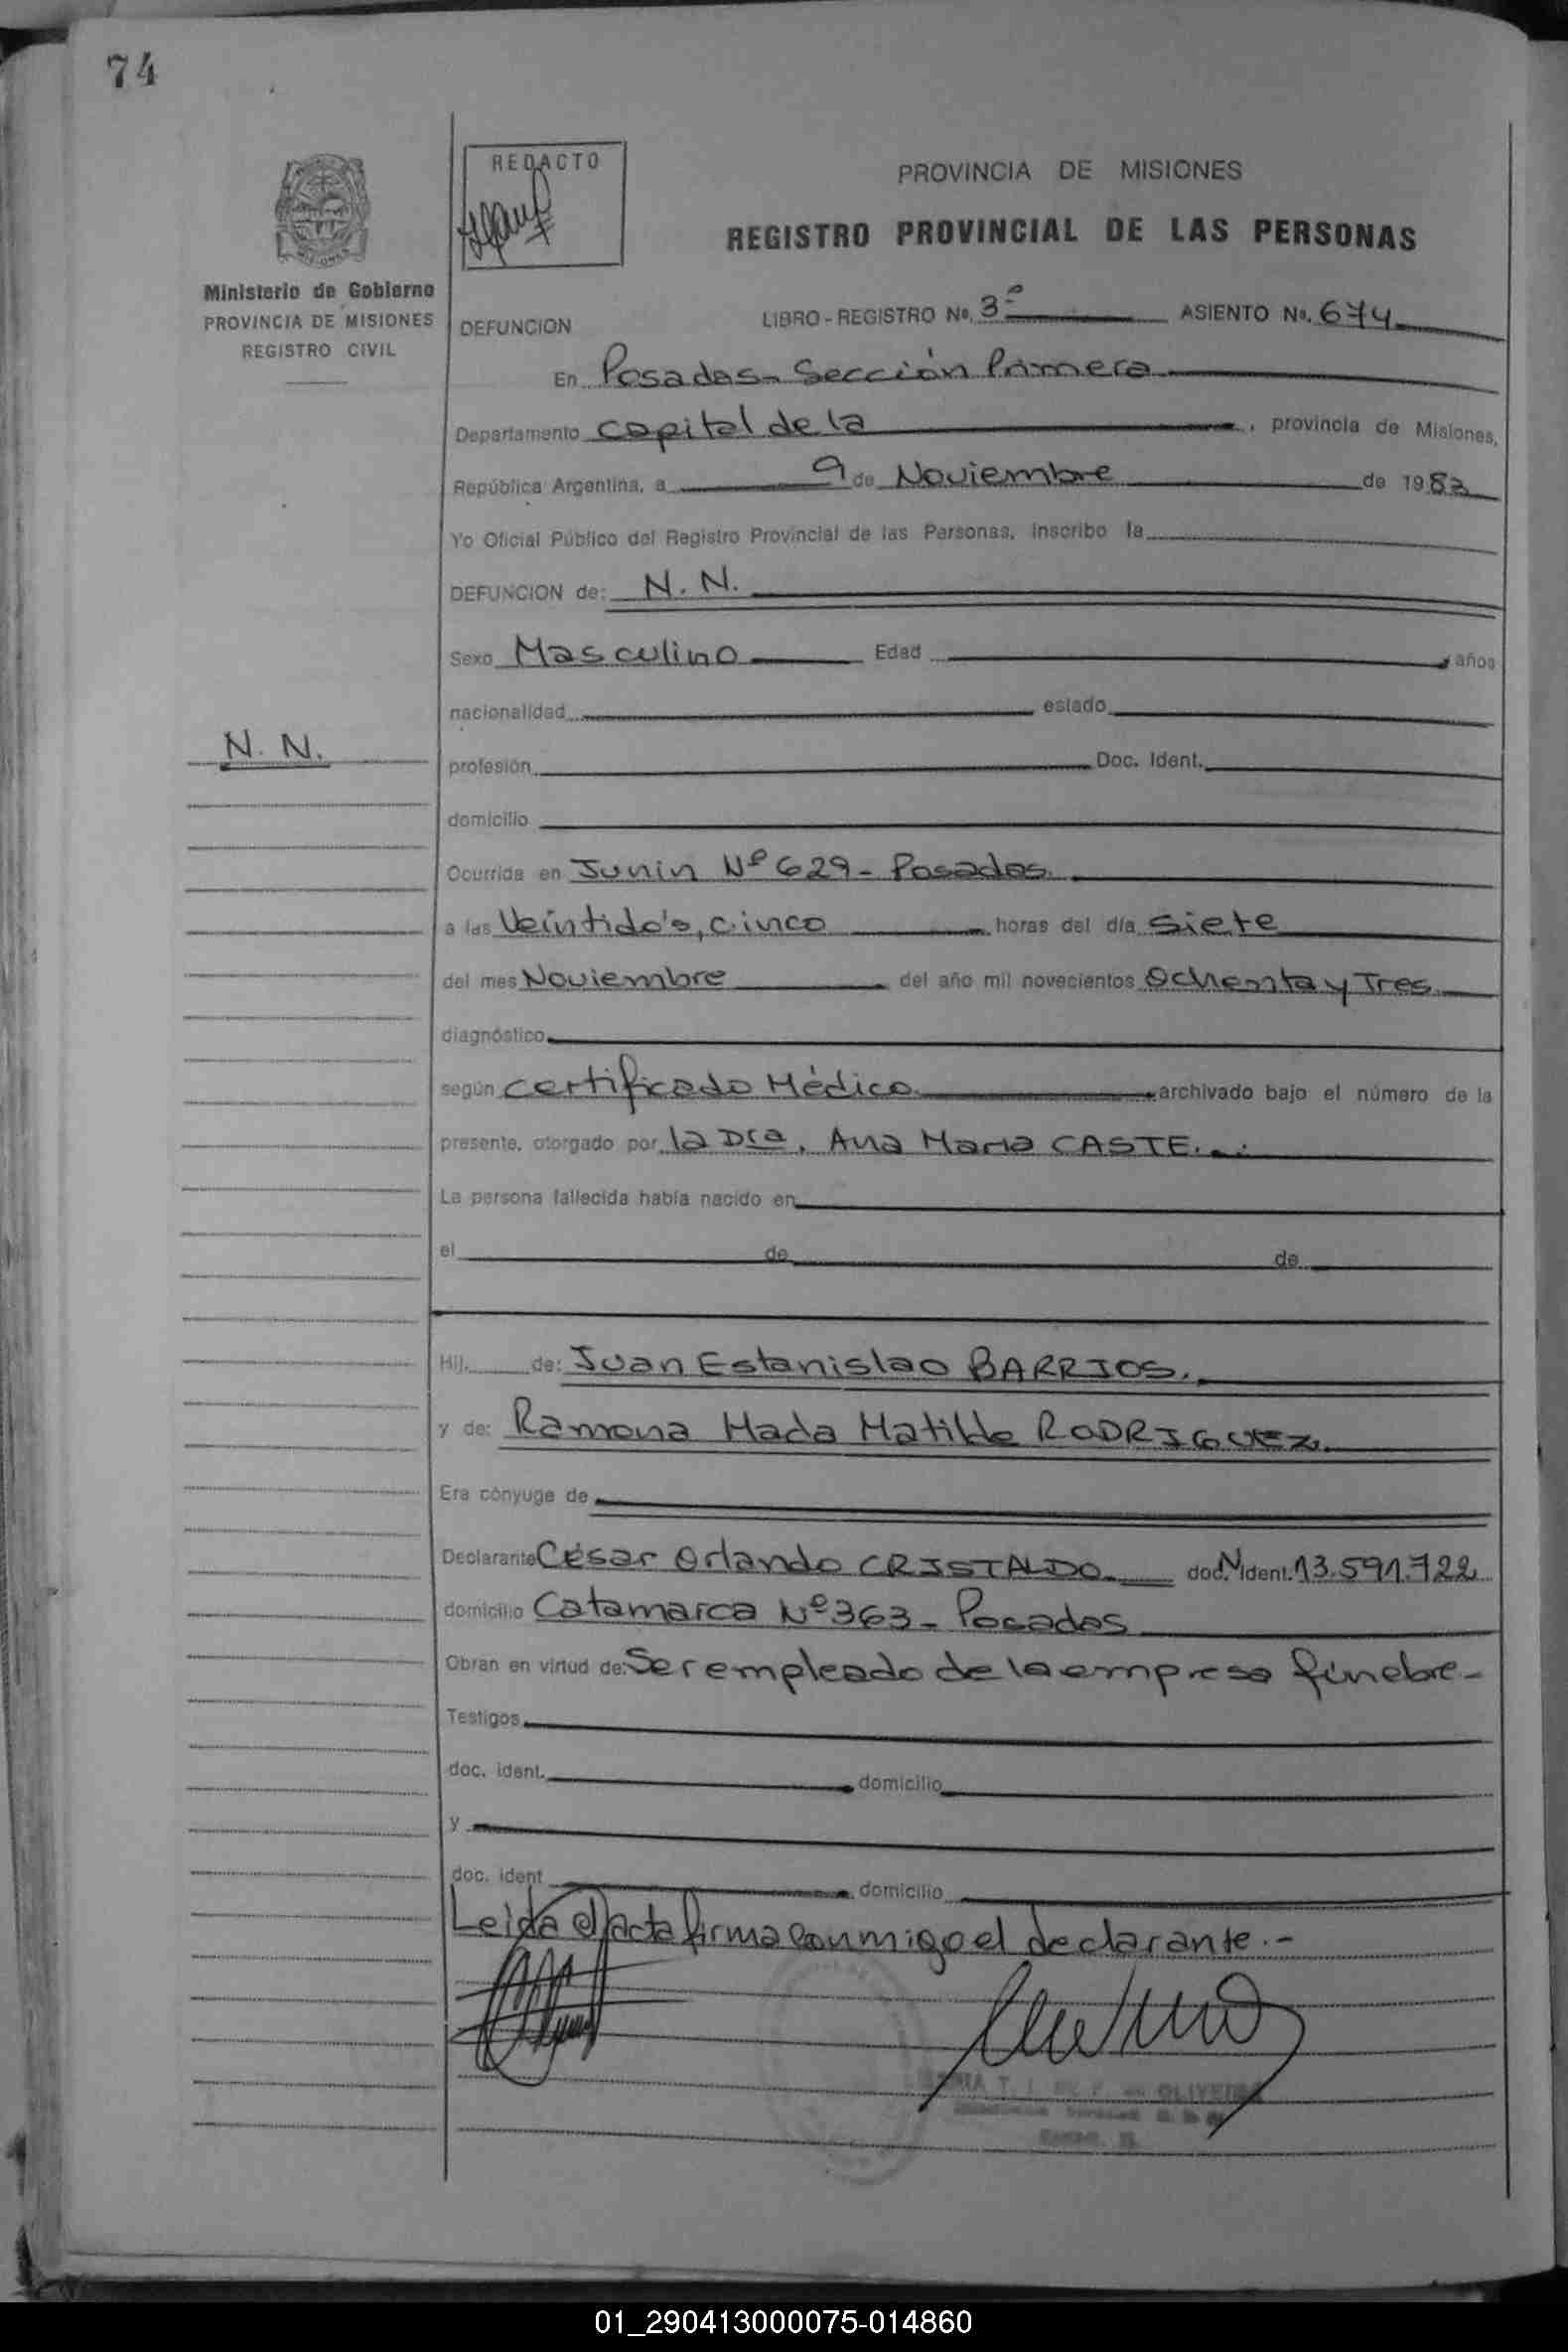 74
REDACTO
PROVINCIA DE MISIONES
REGISTRO PROVINCIAL DE LAS PERSONAS
Ministerio de Gobierno
PROVINCIA DE MISIONES
REGISTRO CIVIL
DEFUNCION
LIBRO - REGISTRO No. 3º ASIENTO No. 674
En Posadas - Sección Primera
Departamento Capital de la , provincia de Misiones,
República Argentina, a 9 de Noviembre de 1983
Yo Oficial Público del Registro Provincial de las Personas, inscribo la
DEFUNCION de: N. N.
Sexo Masculino Edad años
nacionalidad estado
N. N.
profesión Doc. Ident.
domicilio
Ocurrida en Junin Nº 629 - Posadas.
a las Veintidós, cinco horas del día Siete
del mes Noviembre del año mil novecientos Ochenta y Tres.
diagnóstico
según Certificado Médico archivado bajo el número de la
presente, otorgado por la Dra. Ana Maria CASTE.
La persona fallecida había nacido en
el de de
Hij de: Juan Estanislao BARRIOS.
y de: Ramona Mada Matilde RODRIGUEZ.
Era cónyuge de
Declarante César Orlando CRISTALDO. doc. N ident. 13.591.722
domicilio Catamarca Nº 363 - Posadas
Obran en virtud de: Ser empleado de la empresa fúnebre -
Testigos
doc. ident. domicilio
y
doc. ident domicilio
Leida el acta firma conmigo el declarante.-
OLIVEIRA
01_290413000075-014860